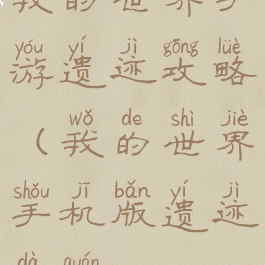 我的世界手
yóu yí jì gōng lüè
游遗迹攻略
wǒ de shì jiè
（我的世界
shǒu jī bǎn yí jì
手机版遗迹
dà quán